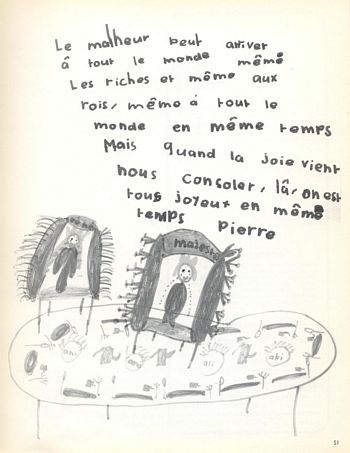 Le malheur peut arriver
â tout le monde même
Les riches et même aux
rois, même à tout le
monde en même temps
Mais quand la joie vient
nous consoler, lâ, on est
tous joyeux en même
temps Pierre
majesté
abi
ali
abi
51